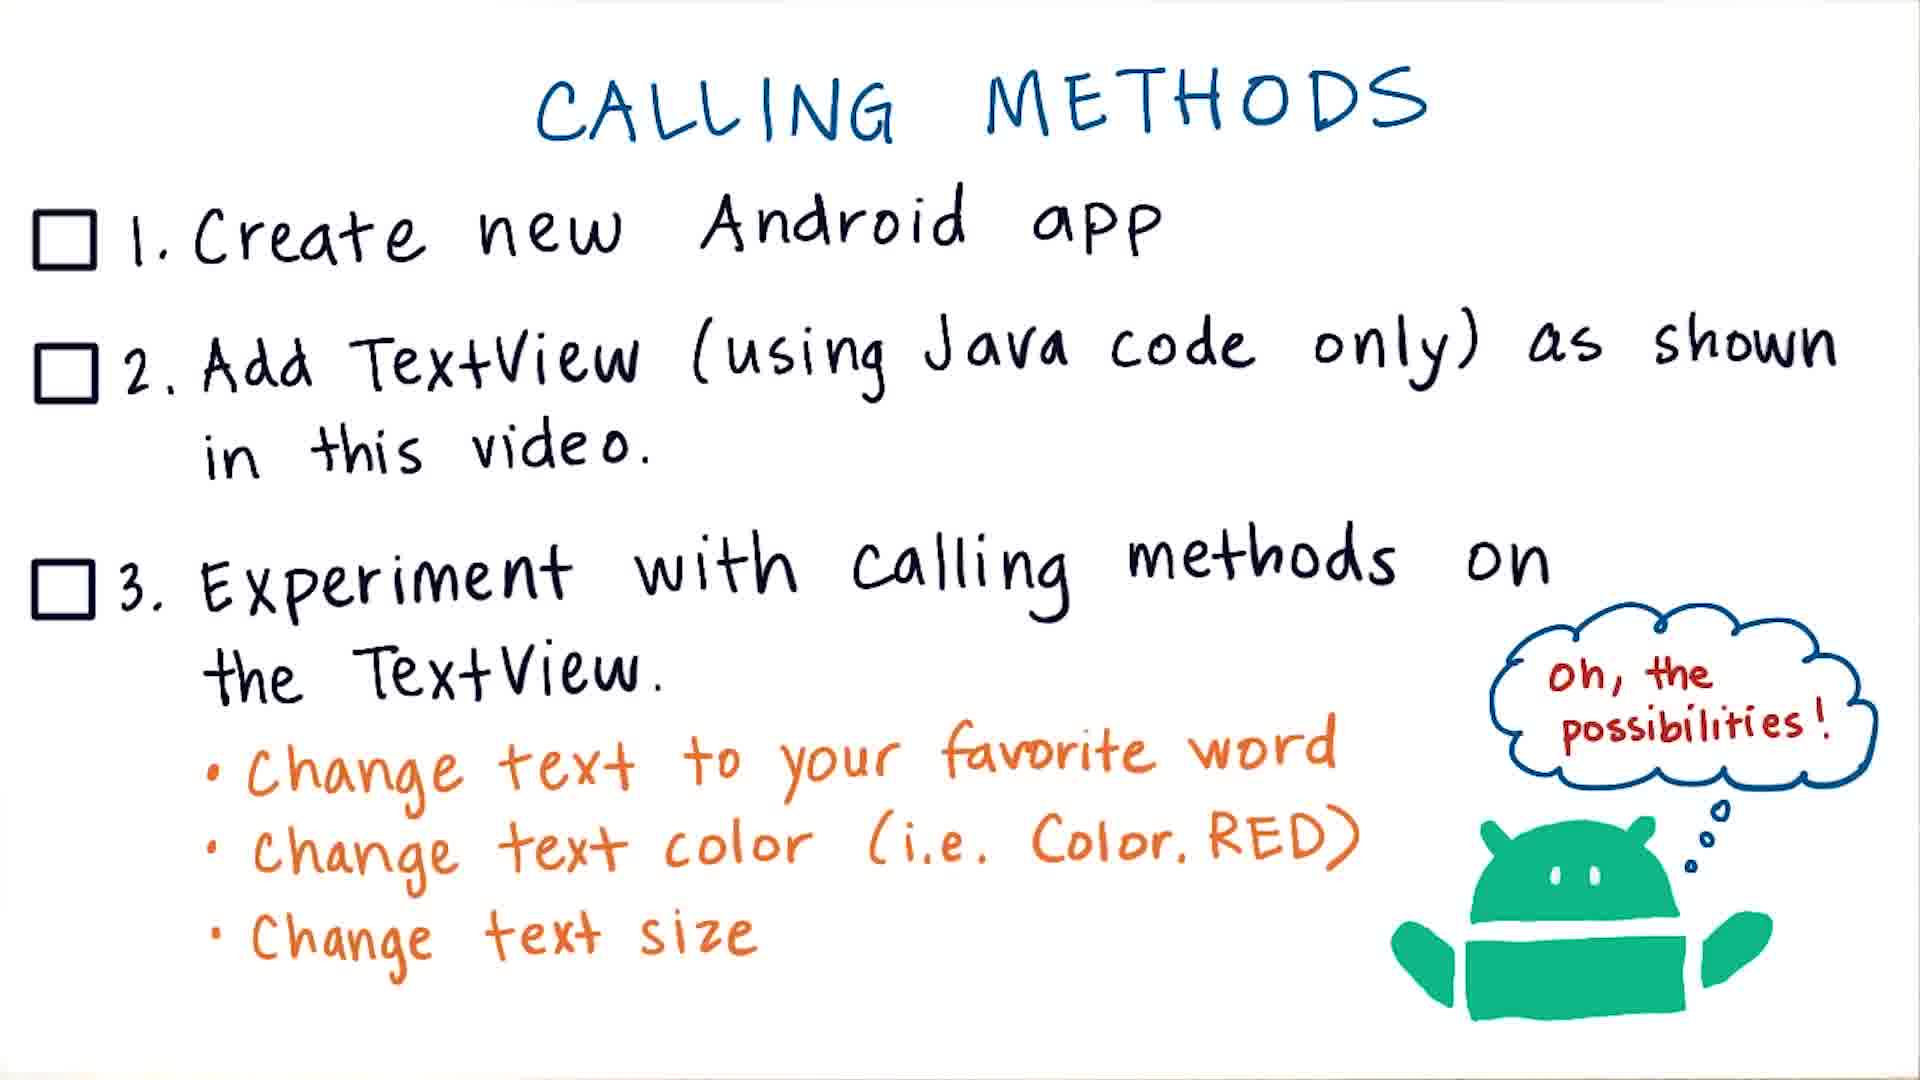 CALLING METHODS
1. Create new Android app
2. Add TextView (using Java code only) as shown
in this video.
3. Experiment with calling methods on
the TextView.
• Change text to your favorite word
• Change text color (i.e. Color.RED)
• Change text size
Oh, the
possibilities!